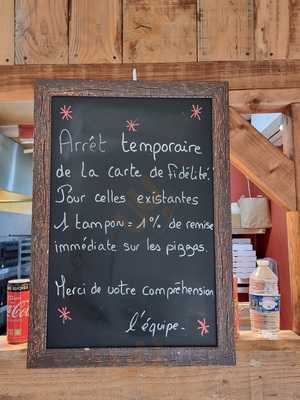 Arrêt temporaire
de la carte de fidélité.
Pour celles existantes
1 tampon = 1% de remise
immédiate sur les pizzas.
Merci de votre compréhension
l'équipe.